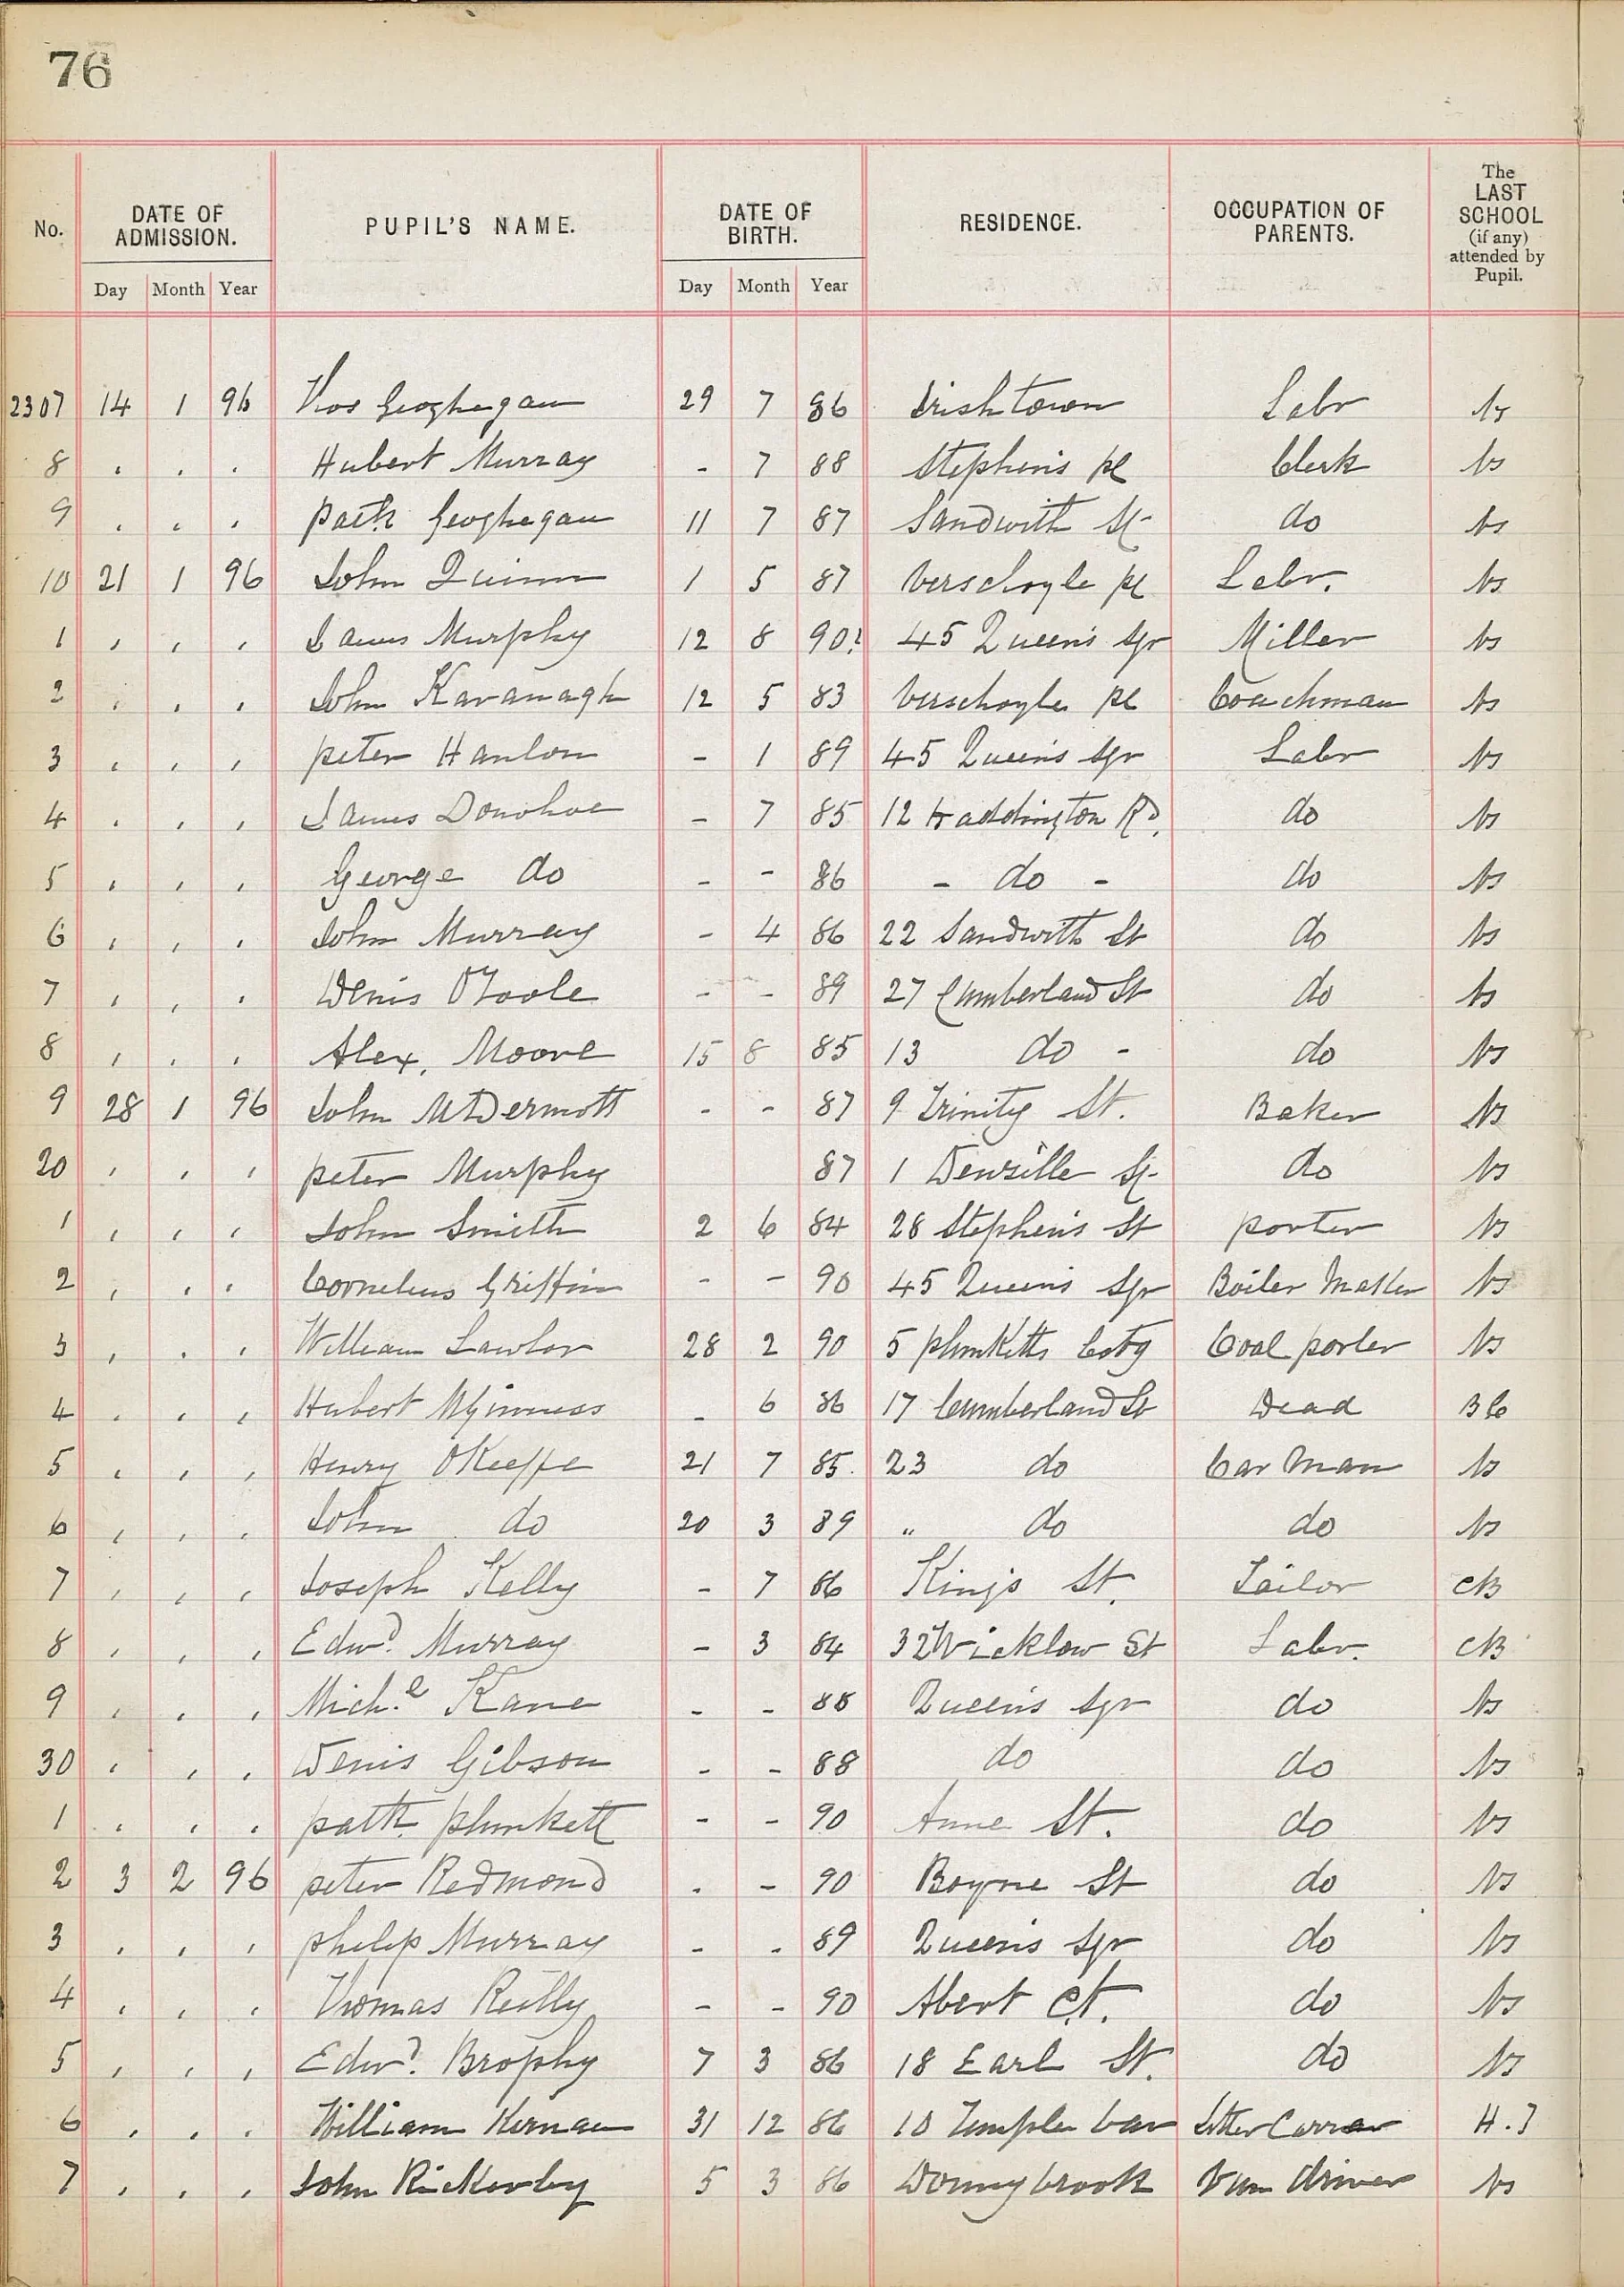 76
No. DATE OF ADMISSION. PUPIL'S NAME. DATE OF BIRTH. RESIDENCE. OCCUPATION OF PARENTS. The LAST SCHOOL (if any) attended by Pupil.
Day Month Year Day Month Year
2307 14 1 96 Thos Geoghegan 29 7 86 Irishtown Labr Ns
8 , , , Hubert Murray - 7 88 Stephen's pl Clerk Ns
9 , , , Patk Geoghegan 11 7 87 Sandwith St do Ns
10 21 1 96 John Quinn 1 5 87 Verschoyle pl Labr. Ns
1 , , , James Murphy 12 8 90 45 Queen's Sqr Miller Ns
2 , , , John Kavanagh 12 5 83 Verschoyle pl Coachman Ns
3 , , , peter Hanlon - 1 89 45 Queen's Sqr Labr Ns
4 , , , James Donohoe - 7 85 12 Haddington Rd. do Ns
5 , , , George do - - 86 - do - do Ns
6 , , , John Murray - 4 86 22 Sandwith St do Ns
7 , , , Denis O'Toole - - 89 27 Cumberland St do Ns
8 , , , Alex. Moore 15 8 85 13 do - do Ns
9 28 1 96 John McDermott - - 87 9 Trinity St. Baker Ns
20 , , , peter Murphy 87 1 Denzille St do Ns
1 , , , John Smith 2 6 84 28 Stephen's St porter Ns
2 , , , Cornelius Griffin - - 90 45 Queen's Sqr Boiler Maker Ns
3 , , , William Lawlor 28 2 90 5 plunketts Cotg Coal porter Ns
4 , , , Hubert McGinness - 6 86 17 Cumberland St Dead B C
5 , , , Henry O'Keeffe 21 7 85. 23 do Car Man Ns
6 , , , John do 20 3 89 " do do Ns
7 , , , Joseph Kelly - 7 86 King's St. Tailor CB
8 , , , Edwd Murray - 3 84 32 Wicklow St Labr. CB
9 , , , Michl Kane - - 88 Queen's Sqr do Ns
30 , , , Denis Gibson - - 88 do do Ns
1 , , , patk plunkett - - 90 Anne St. do Ns
2 3 2 96 peter Redmond - - 90 Boyne St do Ns
3 , , , philip Murray - - 89 Queen's Sqr do Ns
4 , , , Thomas Reilly - - 90 Abert Ct. do Ns
5 , , , Edwd. Brophy 7 3 86 18 Earl St. do Ns
6 , , , William Kernan 31 12 86 10 Temple bar Letter Carrer H.J
7 , , , John Rickerby 5 3 86 Donnybrook Van driver Ns